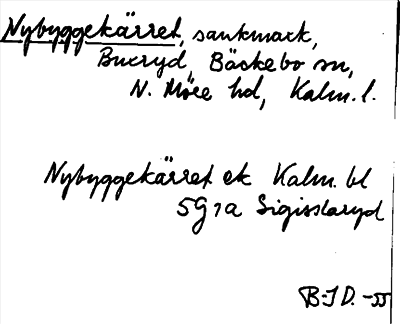 Nybyggekärret, sankmark,
Bucryd, Bäckebo sn,
N. Möre hd, Kalm. l.
Nybyggekärret ek Kalm. bl
5G7a Sigislaryd
B-ID. -55